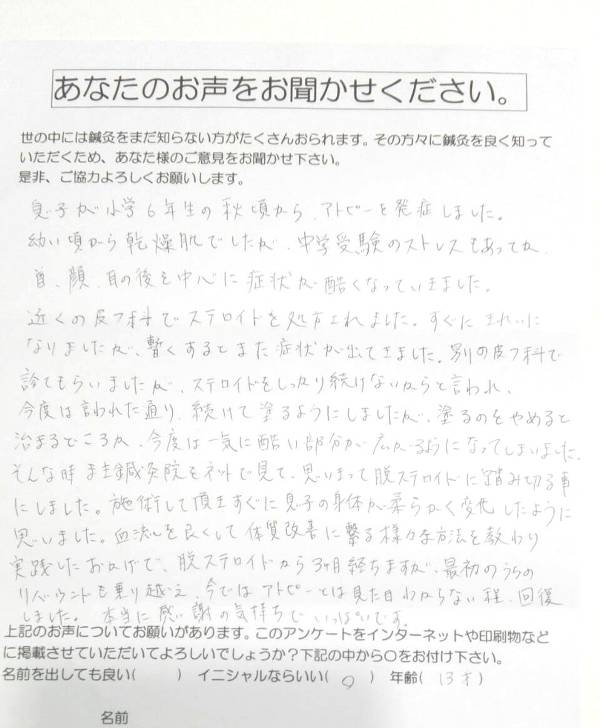 あなたのお声をお聞かせください。
世の中には鍼灸をまだ知らない方がたくさんおられます。その方々に鍼灸を良く知って
いただくため、あなた様のご意見をお聞かせ下さい。
是非、ご協力よろしくお願いします。
息子が小学6年生の秋頃から、アトピーを発症しました。
幼い頃から乾燥肌でしたが、中学受験のストレスもあってか、
首、顔、耳の後を中心に症状が酷くなっていきました。
近くの皮フ科でステロイドを処方されました。すぐにきれいに
なりましたが、暫くするとまた症状が出てきました。別の皮フ科で
診てもらいましたが、ステロイドをしっかり続けないからと言われ、
今度は言われた通り、続けて塗るようにしましたが、塗るのをやめると
治まるどころか、今度は一気に酷い部分が広がるようになってしまいました。
そんな時 鍼灸院をネットで見て、思いきって脱ステロイドに踏み切る事
にしました。施術して頂きすぐに息子の身体が柔らかく変化したように
思いました。血流を良くして体質改善に繋る様々な方法を教わり
実践したおかげで、脱ステロイドから3ヶ月経ちますが、最初のうちの
リバウンドも乗り越え、今ではアトピーとは見た目わからない程、回復
しました。本当に感謝の気持ちでいっぱいです。
上記のお声についてお願いがあります。このアンケートをインターネットや印刷物など
に掲載させていただいてよろしいでしょうか?下記の中から○をお付け下さい。
名前を出しても良い( ) イニシャルならいい( ○ ) 年齢( 13才 )
名前